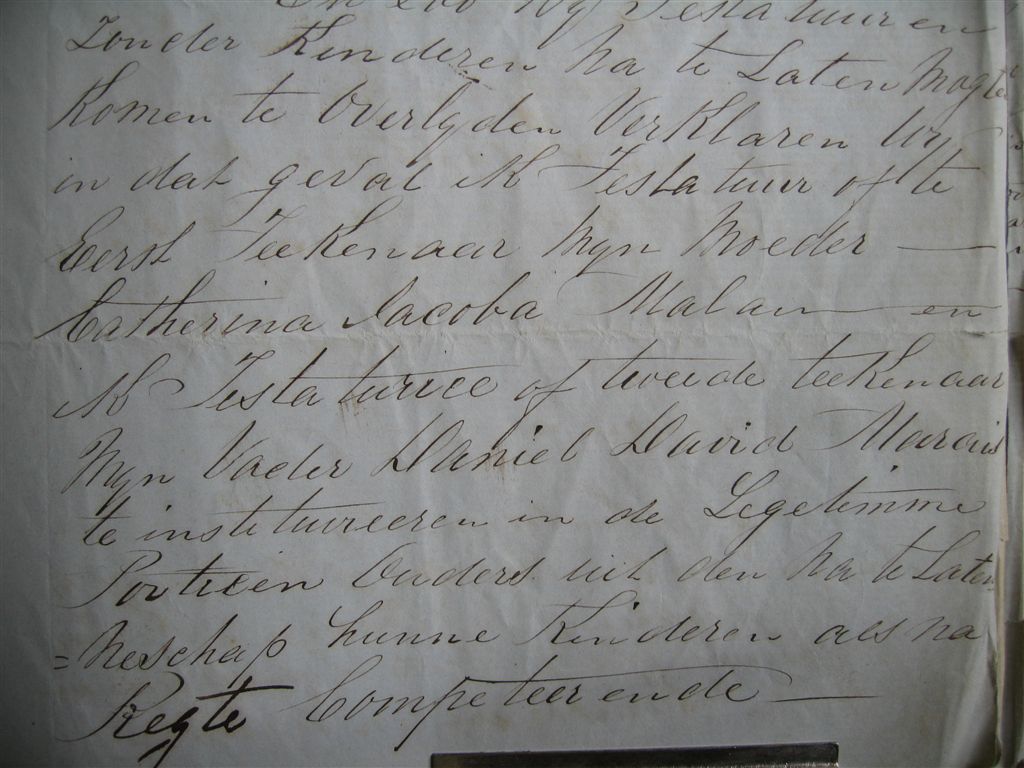 En zoo wy Testatuuren
Zonder Kinderen na te Laten mogte
Komen te Overlyden Verklaren Wy
in dat geval ik Testatuur of te
Eerst Teekenaar Myn Moeder —
Catherina Jacoba Malan — en
ik Testaturice of tweede teekenaar
Myn Vader Daniel David Marais
te institueeren in de Legetimme
Portieen Ouders uit den na te Laten
=heschap hunne Kinderen als na
Regte Competeerende —